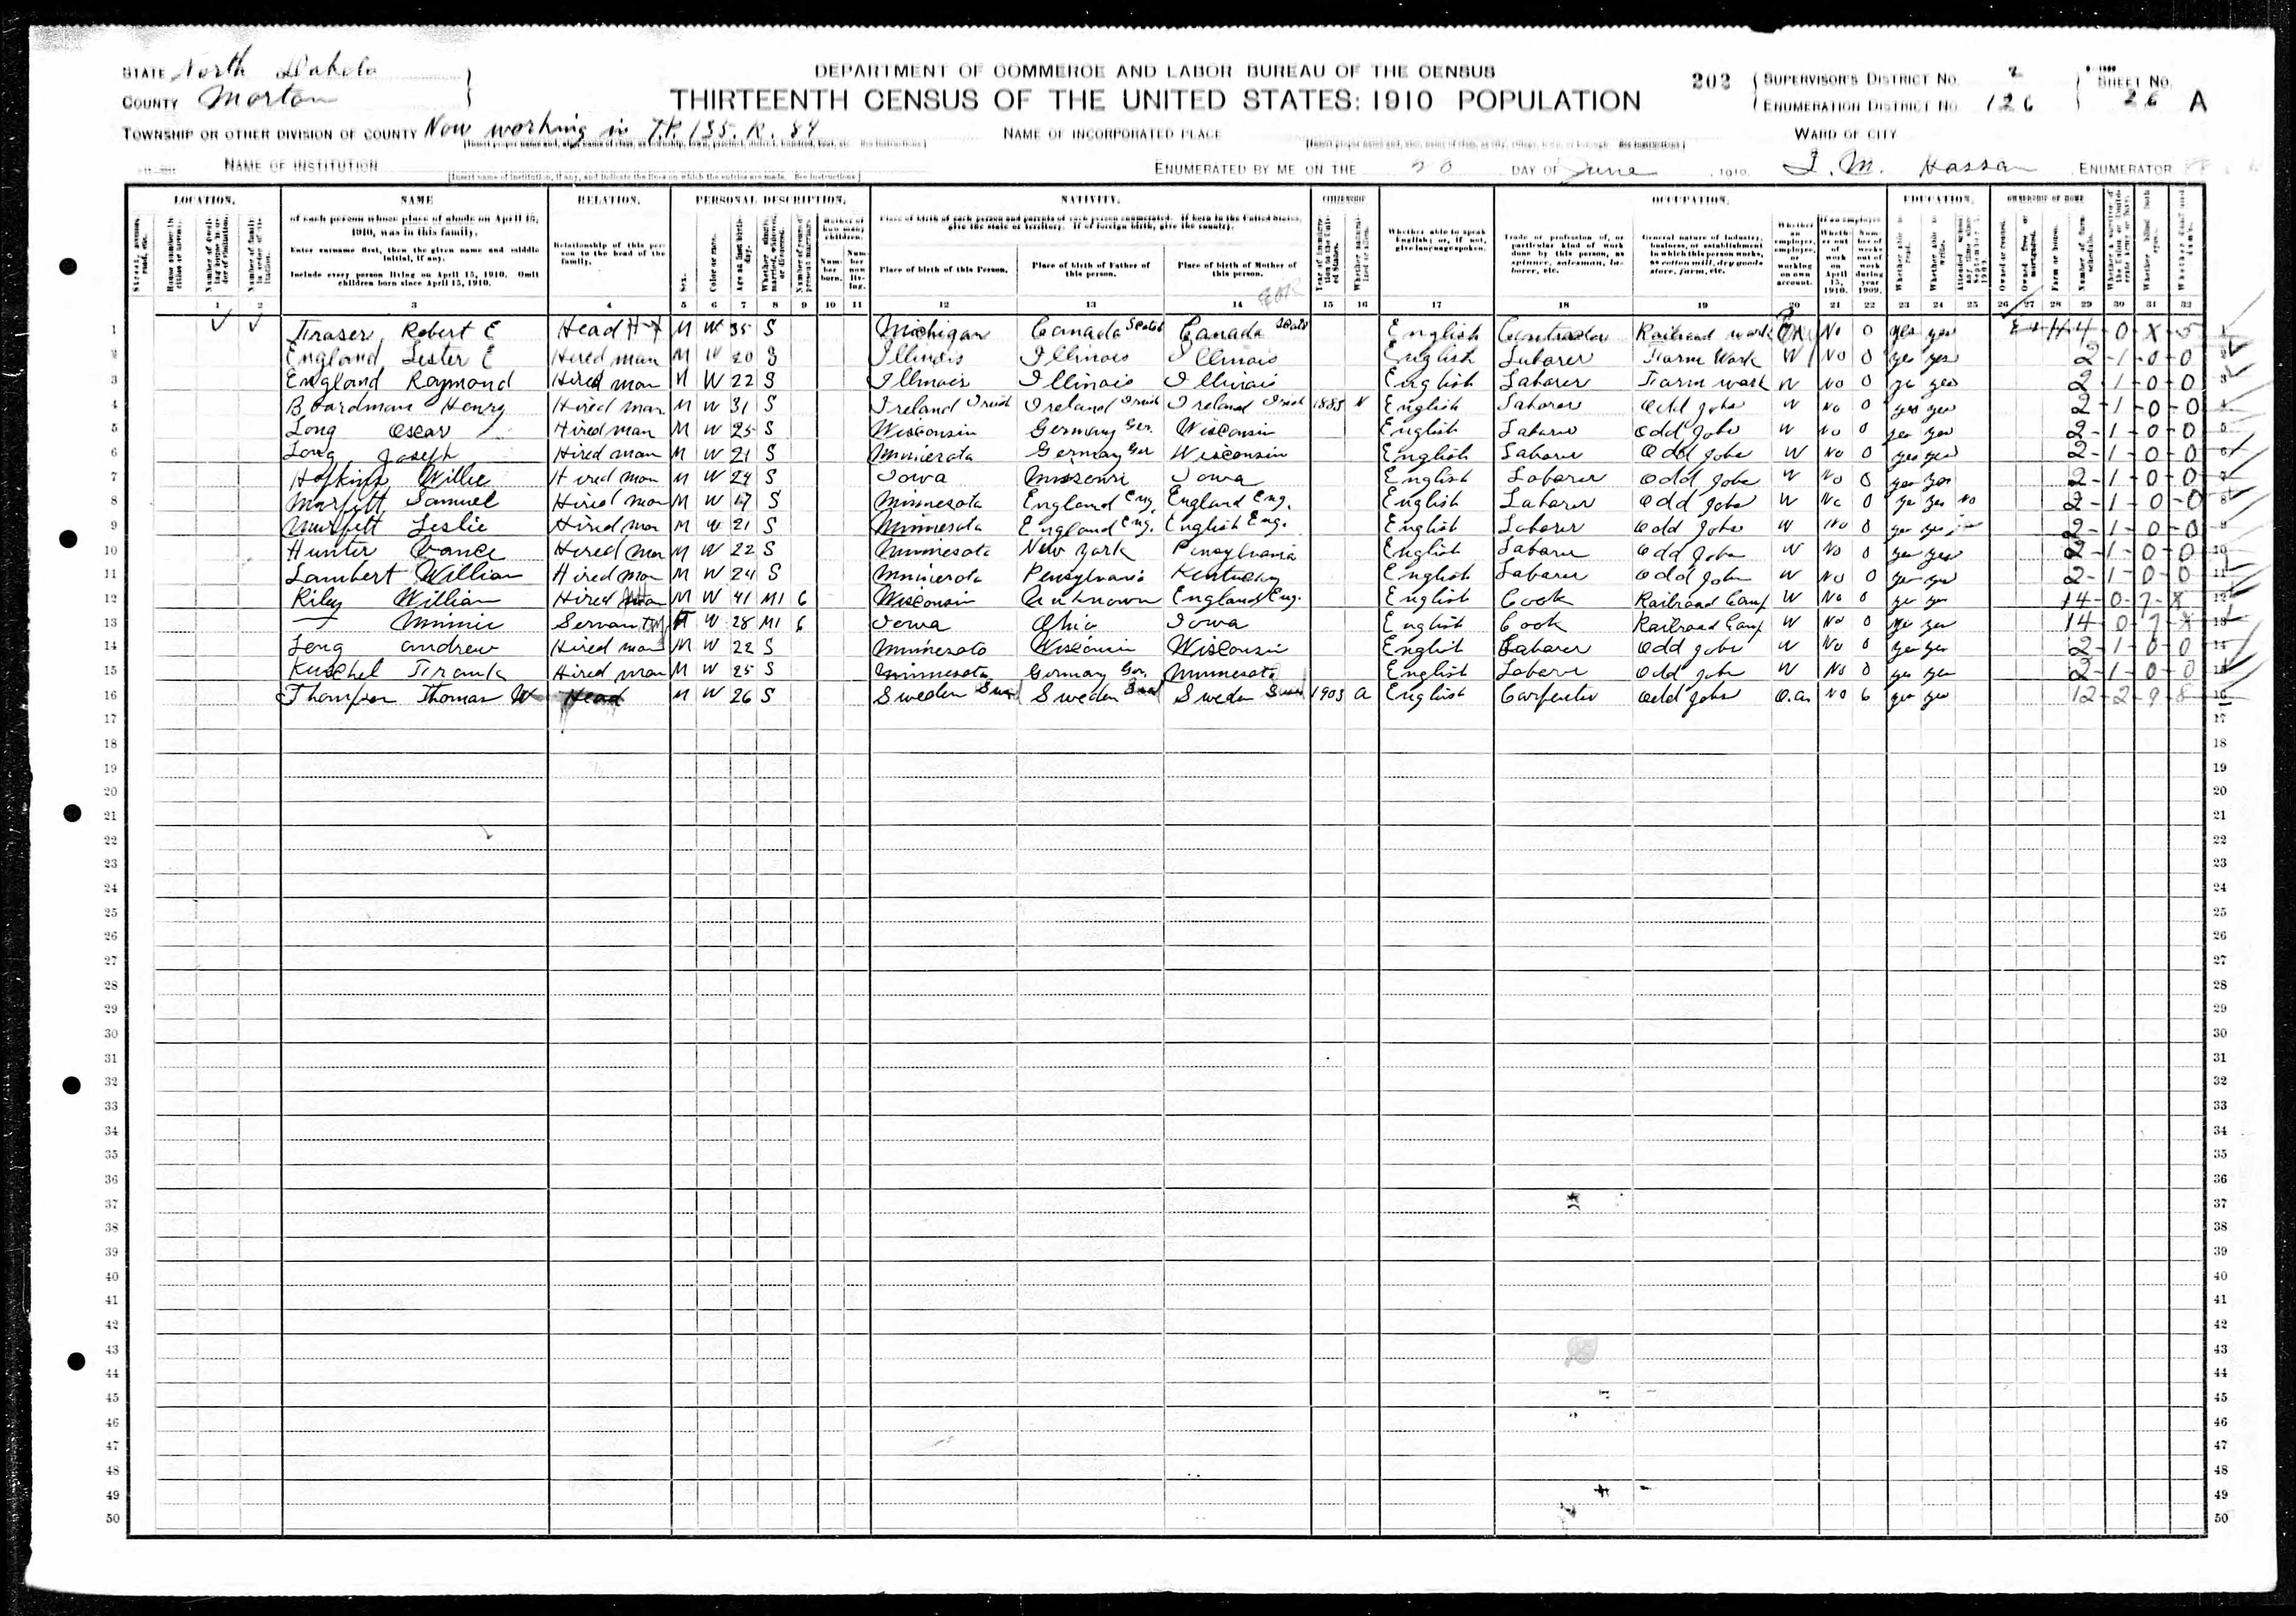 STATE North Dakota
COUNTY Morton
DEPARTMENT OF COMMERCE AND LABOR BUREAU OF THE CENSUS
THIRTEENTH CENSUS OF THE UNITED STATES: 1910 POPULATION
203
SUPERVISOR'S DISTRICT No. 2
ENUMERATION DISTRICT No. 126
SHEET No. 26 A
TOWNSHIP OR OTHER DIVISION OF COUNTY Now working in T.P. 135. R. 84
NAME OF INCORPORATED PLACE
WARD OF CITY
NAME OF INSTITUTION
ENUMERATED BY ME ON THE 20 DAY OF June, 1910. ENUMERATOR
LOCATION. NAME RELATION. PERSONAL DESCRIPTION. NATIVITY. CITIZENSHIP OCCUPATION. EDUCATION. OWNERSHIP OF HOME
of each person whose place of abode on April 15, 1910, was in this family.
Enter surname first, then the given name and middle initial, if any.
Include every person living on April 15, 1910. Omit children born since April 15, 1910.
Relationship of this person to the head of the family.
Place of birth of this Person. Place of birth of Father of this person. Place of birth of Mother of this person.
1 2 3 4 5 6 7 8 9 10 11 12 13 14 15 16 17 18 19 20 21 22 23 24 25 26 27 28 29 30 31 32
1 Fraser, Robert E Head M W 35 S Michigan Canada Scotch Canada Scotch English Contractor Railroad work No 0 yes yes
2 England Lester E Hired man M W 20 S Illinois Illinois Illinois English Laborer Farm Work W No 0 yes yes 2-1-0-0
3 England Raymond Hired man M W 22 S Illinois Illinois Illinois English Laborer Farm work W No 0 yes yes 2-1-0-0
4 Boardman Henry Hired man M W 31 S Ireland Irish Ireland Irish Ireland Irish 1885 N English Laborer Odd jobs W No 0 yes yes 2-1-0-0
5 Long Oscar Hired man M W 25 S Wisconsin Germany Ger. Wisconsin English Laborer Odd Jobs W No 0 yes yes 2-1-0-0
6 Long Joseph Hired man M W 21 S Minnesota Germany Ger Wisconsin English Laborer Odd Jobs W No 0 yes yes 2-1-0-0
7 Hopkins Willie Hired man M W 24 S Iowa Missouri Iowa English Laborer Odd Jobs W No 0 yes yes 2-1-0-0
8 Murfett Samuel Hired man M W 17 S Minnesota England Eng. England Eng. English Laborer Odd Jobs W No 0 yes yes No 2-1-0-0
9 Murfett Leslie Hired man M W 21 S Minnesota England Eng. English Eng. English Laborer Odd Jobs W No 0 yes yes 2-1-0-0
10 Hunter Vance Hired man M W 22 S Minnesota New York Pensylvania English Laborer Odd Jobs W No 0 yes yes 2-1-0-0
11 Lambert William Hired man M W 24 S Minnesota Pensylvania Kentucky English Laborer Odd Jobs W No 0 yes yes 2-1-0-0
12 Riley William Hired man M W 41 M1 6 Wisconsin Unknown England Eng. English Cook Railroad Camp W No 0 yes yes 14-0-7-X
13 — Minnie Servant F W 28 M1 6 Iowa Ohio Iowa English Cook Railroad Camp W No 0 yes yes 14 0 7 X
14 Long Andrew Hired man M W 22 S Minnesota Wisconsin Wisconsin English Laborer Odd jobs W No 0 yes yes 2-1-0-0
15 Kuschel Frank Hired man M W 25 S Minnesota Germany Ger. Minnesota English Laborer Odd jobs W No 0 yes yes 2-1-0-0
16 Thompson Thomas W Head M W 26 S Sweden Swe Sweden Swe Sweden Swe 1903 A English Carpenter Odd Jobs O.a. No 6 yes yes 12-2-9-8
17
18
19
20
21
22
23
24
25
26
27
28
29
30
31
32
33
34
35
36
37
38
39
40
41
42
43
44
45
46
47
48
49
50